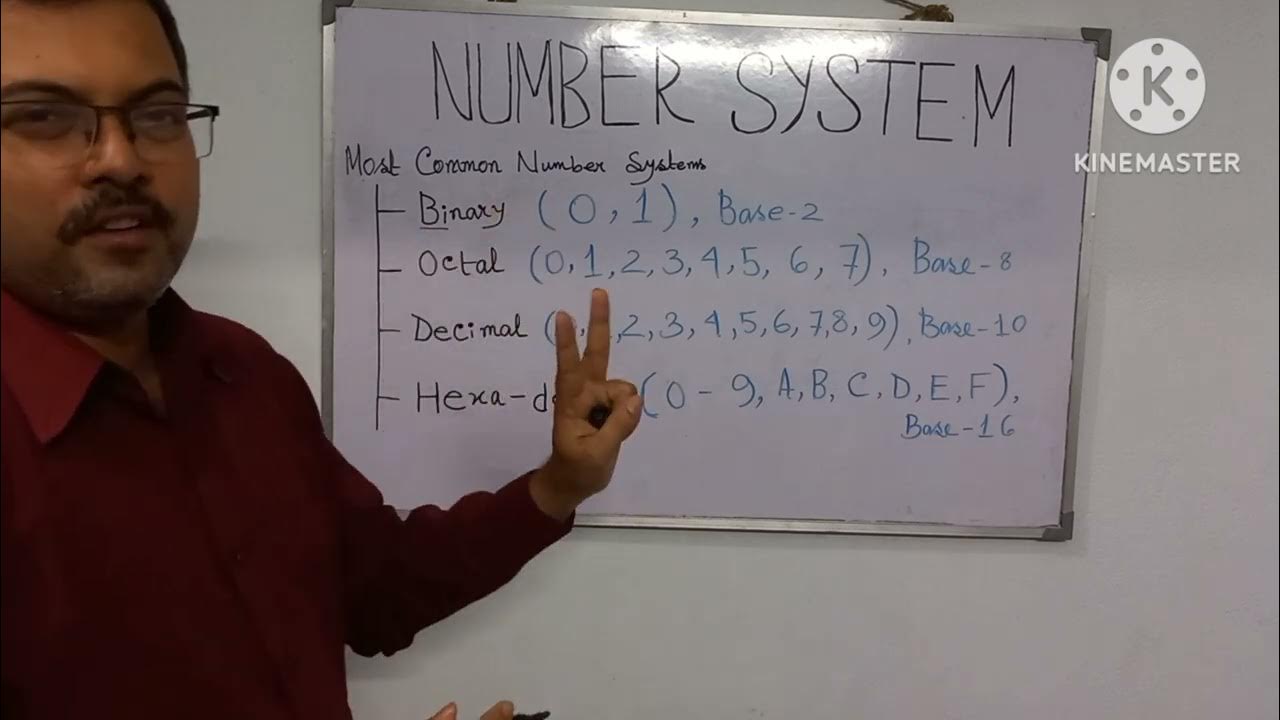 NUMBER SYSTEM
Most Common Number Systems
Binary (0,1), Base-2
Octal (0,1,2,3,4,5,6,7), Base-8
Decimal ( ,2,3,4,5,6,7,8,9), Base-10
Hexa-d (0-9, A,B,C,D,E,F),
Base-16
K
KINEMASTER